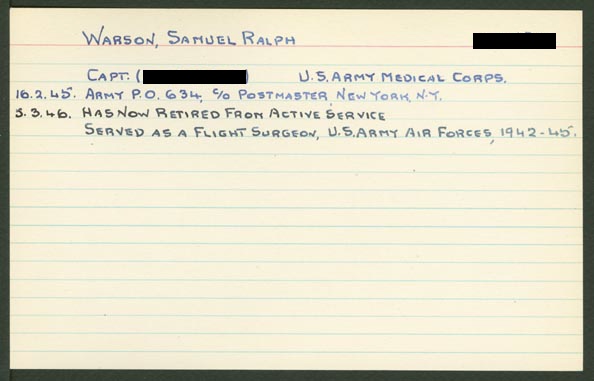 WARSON, SAMUEL RALPH
CAPT. ( ) U.S. ARMY MEDICAL CORPS.
16.2.45. ARMY P.O. 634, C/O POSTMASTER, NEW YORK, N.Y.
5.3.46. HAS NOW RETIRED FROM ACTIVE SERVICE
SERVED AS A FLIGHT SURGEON, U.S. ARMY AIR FORCES, 1942-45.